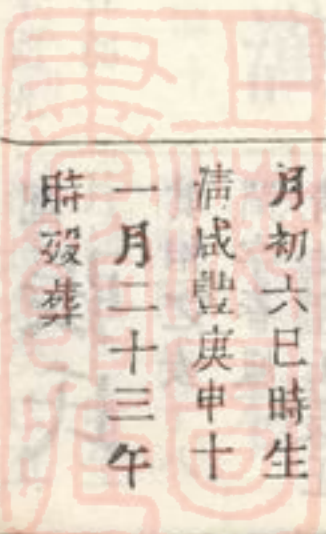 月初六巳時生
清咸豐庚申十
一月二十三午
時殁葬